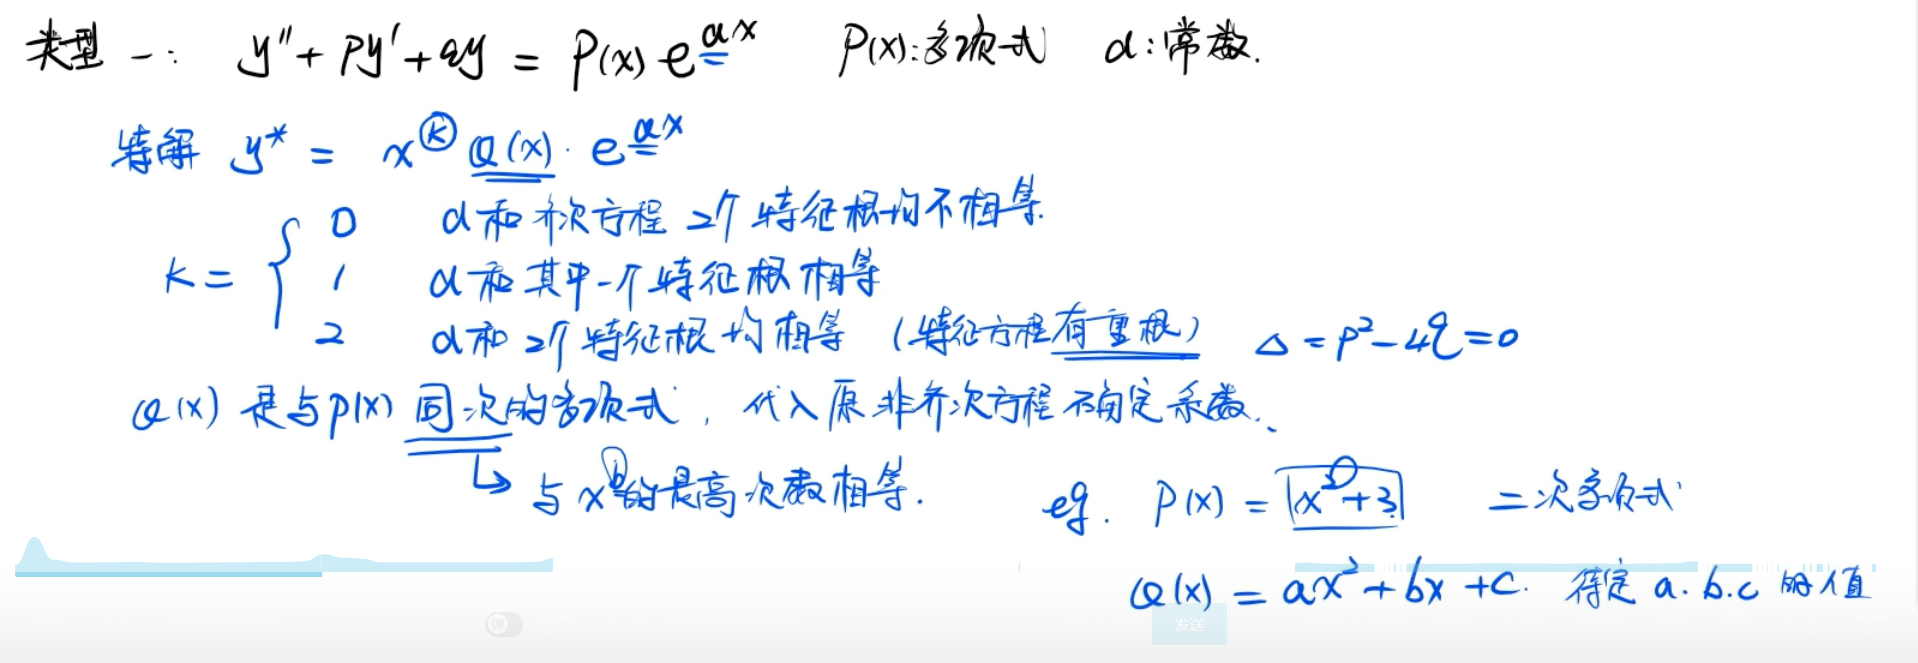 类型一: y″ + py′ + qy = P(x) e^{αx}   P(x):多项式   α:常数.
特解 y* = x^{k} Q(x) · e^{αx}
k = { 0   α和齐次方程2个特征根均不相等.
1   α和其中一个特征根相等
2   α和2个特征根均相等 (特征方程有重根)   Δ = p² - 4q = 0
Q(x) 是与P(x) 同次的多项式, 代入原非齐次方程确定系数.
↳ 与x的最高次数相等.
eg. P(x) = x²+3   二次多项式
Q(x) = ax² + bx + c. 待定 a.b.c 的值
弹
发送